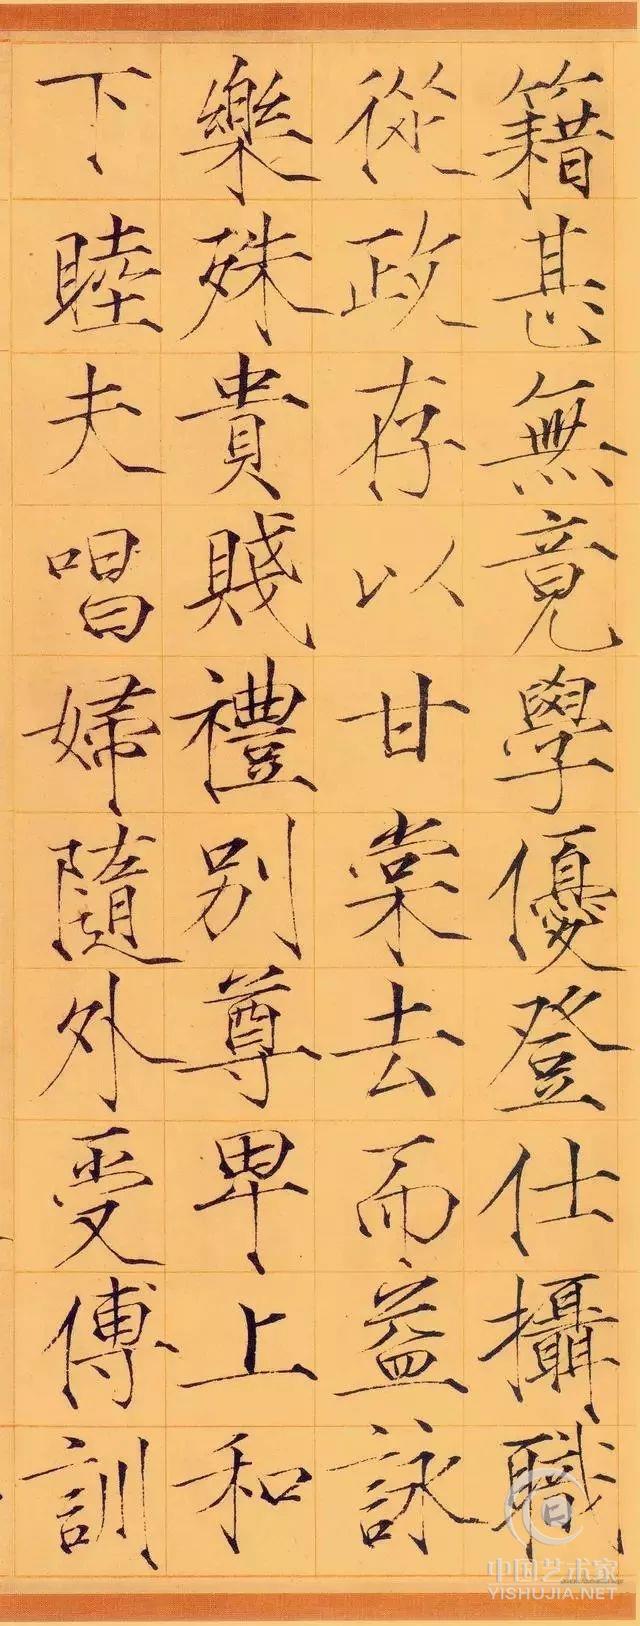 籍甚無竟學優登仕攝職
從政存以甘棠去而益詠
樂殊貴賤禮別尊卑上和
下睦夫唱婦隨外受傅訓
中国艺术家
YISHUJIA.NET